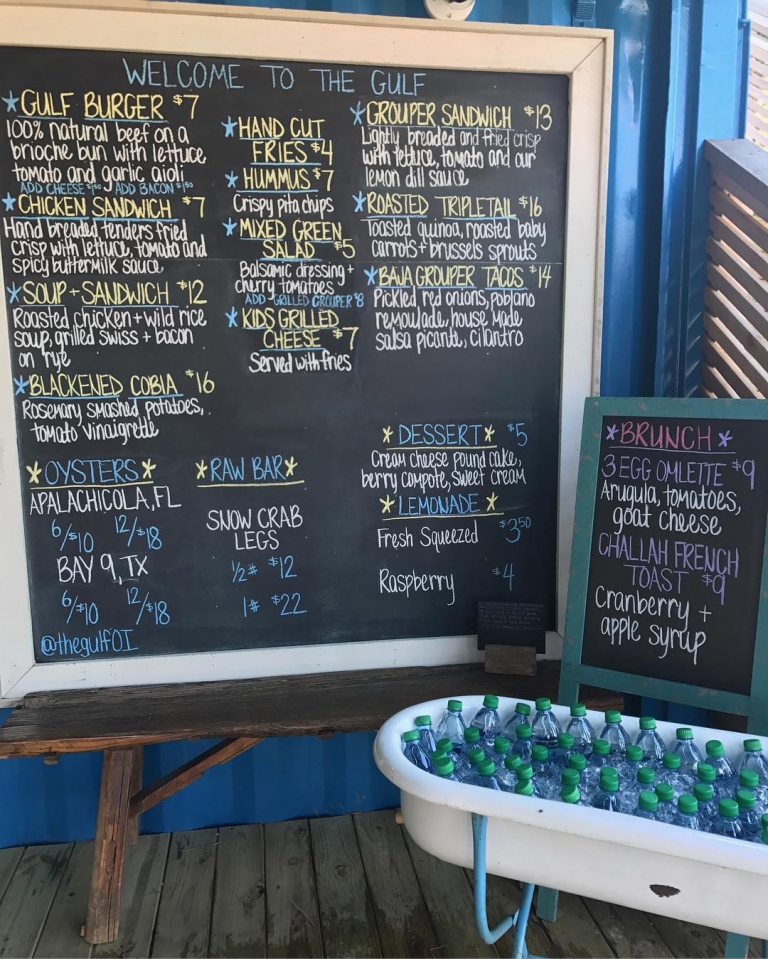 WELCOME TO THE GULF
*GULF BURGER $7
100% natural beef on a
brioche bun with lettuce,
tomato and garlic aioli
ADD CHEESE $1.50 ADD BACON $1.50
*CHICKEN SANDWICH $7
Hand breaded tenders fried
crisp with lettuce, tomato and
spicy buttermilk sauce
*SOUP + SANDWICH $12
Roasted chicken + wild rice
soup, grilled swiss + bacon
on rye
*BLACKENED COBIA $16
Rosemary smashed potatoes,
tomato vinaigrette
*HAND CUT
FRIES $4
*HUMMUS $7
Crispy pita chips
*MIXED GREEN
SALAD $5
Balsamic dressing +
cherry tomatoes
ADD GRILLED GROUPER $8
*KIDS GRILLED
CHEESE $7
Served with fries
*GROUPER SANDWICH $13
Lightly breaded and fried crisp
with lettuce, tomato and our
lemon dill sauce
*ROASTED TRIPLETAIL $16
Toasted quinoa, roasted baby
carrots + brussels sprouts
*BAJA GROUPER TACOS $14
Pickled red onions, poblano
remoulade, house made
salsa picante, cilantro
*OYSTERS*
APALACHICOLA, FL
6/$10 12/$18
BAY 9, TX
6/$10 12/$18
@thegulfOI
*RAW BAR*
SNOW CRAB
LEGS
1/2# $12
1# $22
*DESSERT* $5
Cream cheese pound cake,
berry compote, sweet cream
*LEMONADE*
Fresh Squeezed $3.50
Raspberry $4
*BRUNCH*
3 EGG OMLETTE $9
Arugula, tomatoes,
goat cheese
CHALLAH FRENCH
TOAST $9
Cranberry +
apple syrup